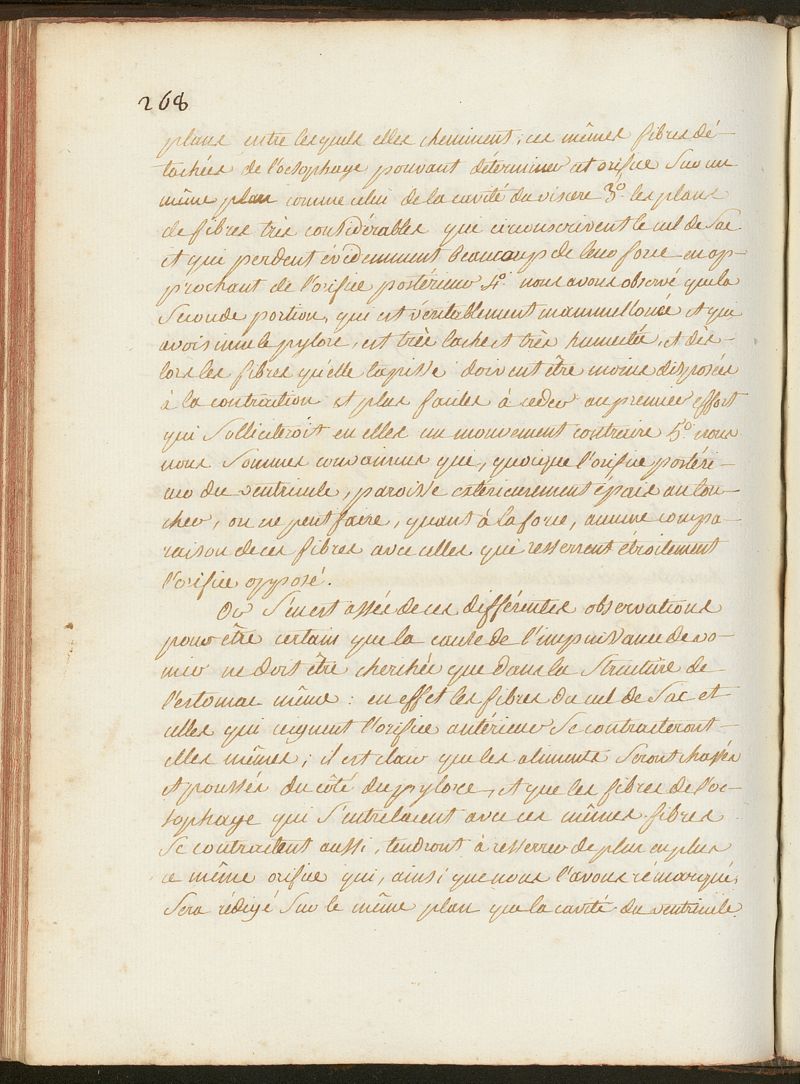 268
plans entre lesquels elles cheminent; ces mêmes fibres dé-
tachées de l'octophage pouvant déterminer cet orifice sur un
même plan comme celui de la cavité du viscere 3.° les plans
de fibres très considérables qui circonscrivent le cul de sac
et qui perdent évidemment beaucoup de leur force en op-
prochant de l'orifice postérieur 4.° nous avons observé que la
seconde portion, qui est véritablement mammellonée et qui
avoisinne le pylore, est très lache et très humectée, et dès-
lors les fibres qu'elle tapisse doivent être moins disposées
à la contraction et plus faciles à ceder au premier effort
qui solliciteroit en elles un mouvement contraire 5.° nous
nous sommes convaincus que, quoique l'orifice postéri-
eur du ventricule, paroisse extérieurement épais au tou-
cher, on ne peut faire, quant à la force, aucune compa-
raison de ces fibres avec celles qui resserrent étroitement
l'orifice opposé.
Or s'en est assés de ces différentes observations
pour être certain que la cause de l'impuissance de vo-
mir ne doit être cherchée que dans la structure de
l'estomac même: en effet les fibres du cul de sac et
celles qui ceignent l'orifice antérieur se contracteront-
elles mêmes; il est clair que les aliments seront chassés
et poussés du côté du pylore, et que les fibres de l'oc-
sophage qui s'entrelacent avec ces mêmes fibres
se contractent aussi, tendront à resserrer de plus en plus
ce même orifice qui, ainsi que nous l'avons rémarqué,
sera rédigé sur le même plan que la cavité du ventricule